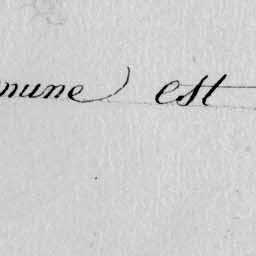 mune) est